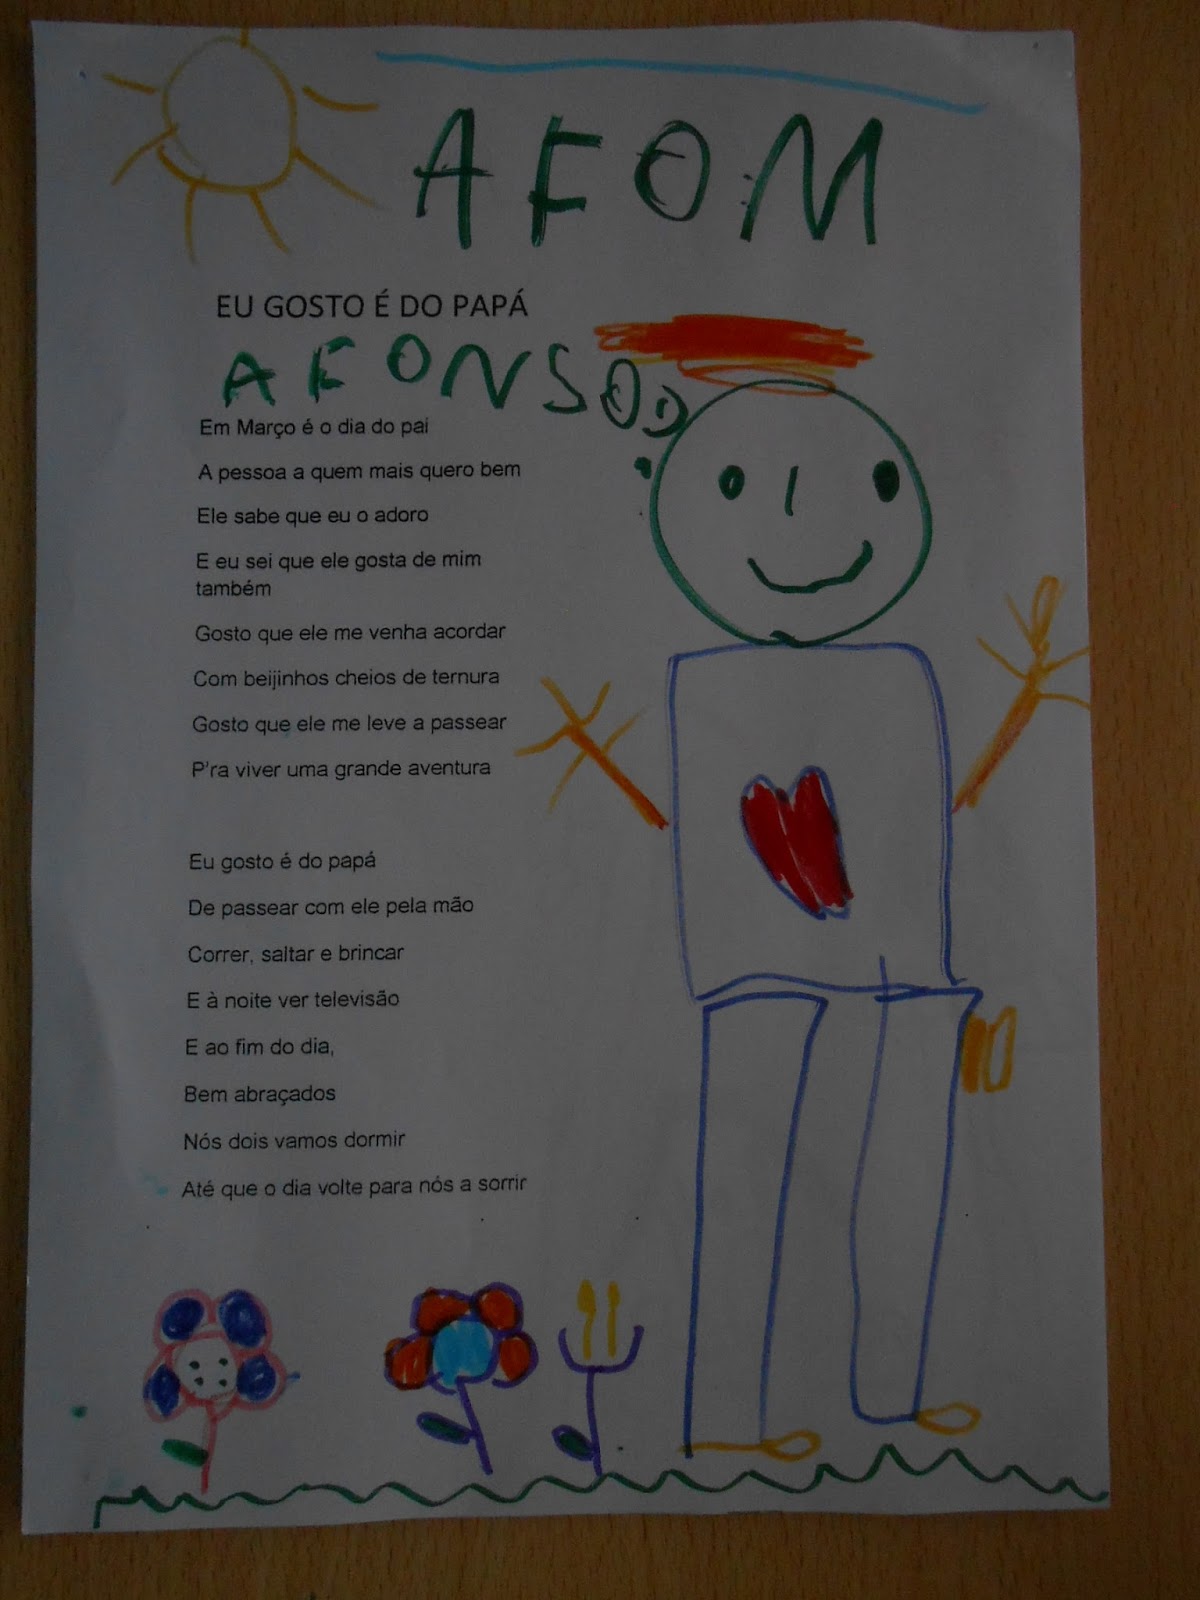 AFOM
EU GOSTO É DO PAPÁ
AFONSOD
Em Março é o dia do pai
A pessoa a quem mais quero bem
Ele sabe que eu o adoro
E eu sei que ele gosta de mim
também
Gosto que ele me venha acordar
Com beijinhos cheios de ternura
Gosto que ele me leve a passear
P'ra viver uma grande aventura
Eu gosto é do papá
De passear com ele pela mão
Correr, saltar e brincar
E à noite ver televisão
E ao fim do dia,
Bem abraçados
Nós dois vamos dormir
Até que o dia volte para nós a sorrir